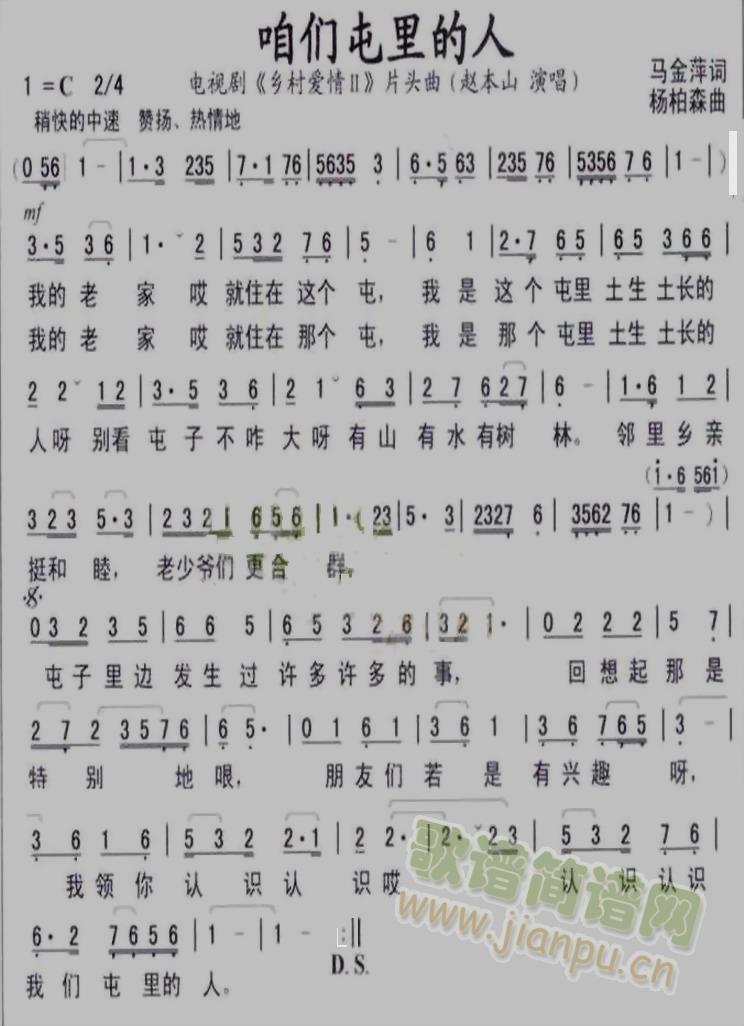 咱们屯里的人
1=C 2/4 电视剧《乡村爱情II》片头曲(赵本山 演唱) 马金萍词
杨柏森曲
稍快的中速 赞扬、热情地
(0 56 | 1 - | 1·3 235 | 7·1 76 | 5635 3 | 6·5 63 | 235 76 | 5356 76 | 1 - | )
mf
3·5 36 | 1· ˇ 2 | 532 76 | 5 - | 6 1 | 2·7 65 | 65 366 |
我的 老 家 哎 就住在 这个 屯, 我 是 这 个 屯里 土生 土长的
我的 老 家 哎 就住在 那个 屯, 我 是 那 个 屯里 土生 土长的
2 2 ˇ 12 | 3·5 36 | 2 1 ˇ 63 | 2 7 627 | 6 - | 1·6 12 |
人呀 别看 屯 子 不咋 大呀有山 有水有树 林。 邻里乡亲
(i·6 56i)
323 5·3 | 2321 656 | 1·( 23 | 5·3 | 2327 6 | 3562 76 | 1 - ) |
挺和 睦, 老少爷们 更合 群。
𝄋
03235 | 665 | 65 326 | 321· | 0222 | 57 |
屯子里边 发生过 许多许多的 事, 回想起那是
272 3576 | 65· | 0161 | 361 | 36 765 | 3 - |
特别 地 哏, 朋友们若 是 有兴趣 呀,
36 16 | 532 2·1 | 2 2· | 2·23 | 532 76 |
我领你 认 识认 识哎 认 识认识
6·2 7656 | 1 - | 1 - :||
D.S.
我们 屯里的 人。
歌谱简谱网
www.jianpu.cn